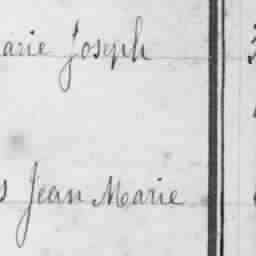 arie Joseph
s Jean Marie